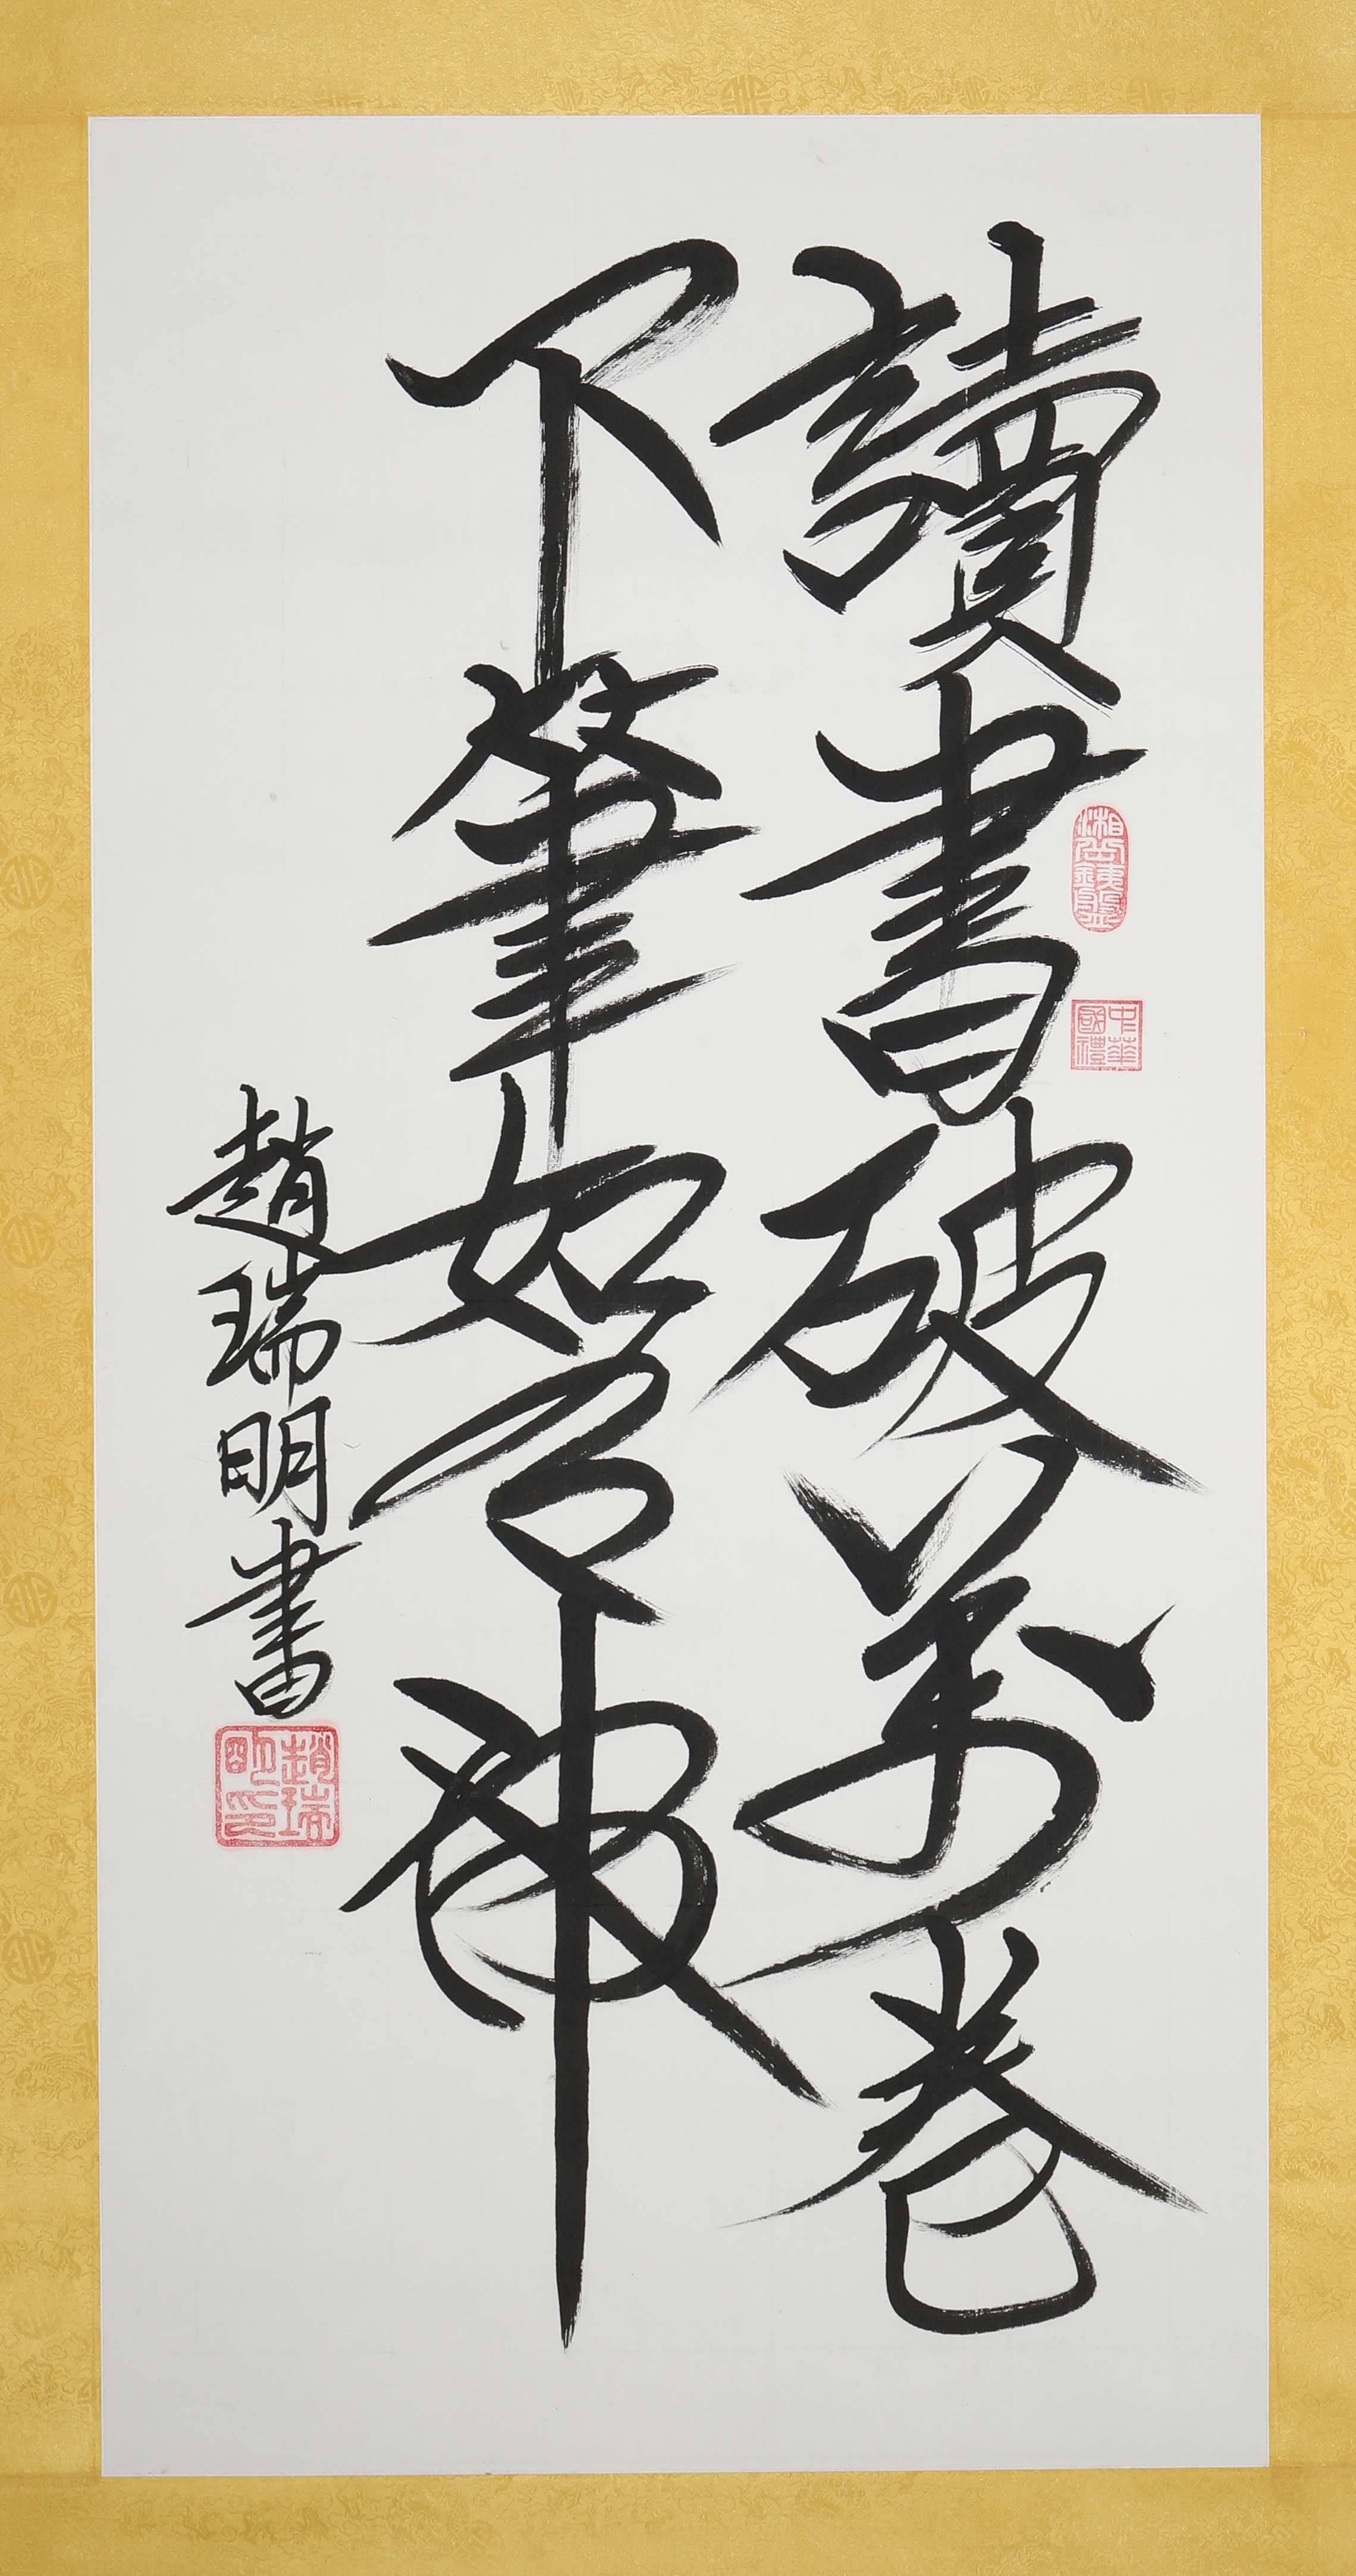 讀書破萬卷
下筆如有神
趙瑞明書
中華國禮
趙瑞明印